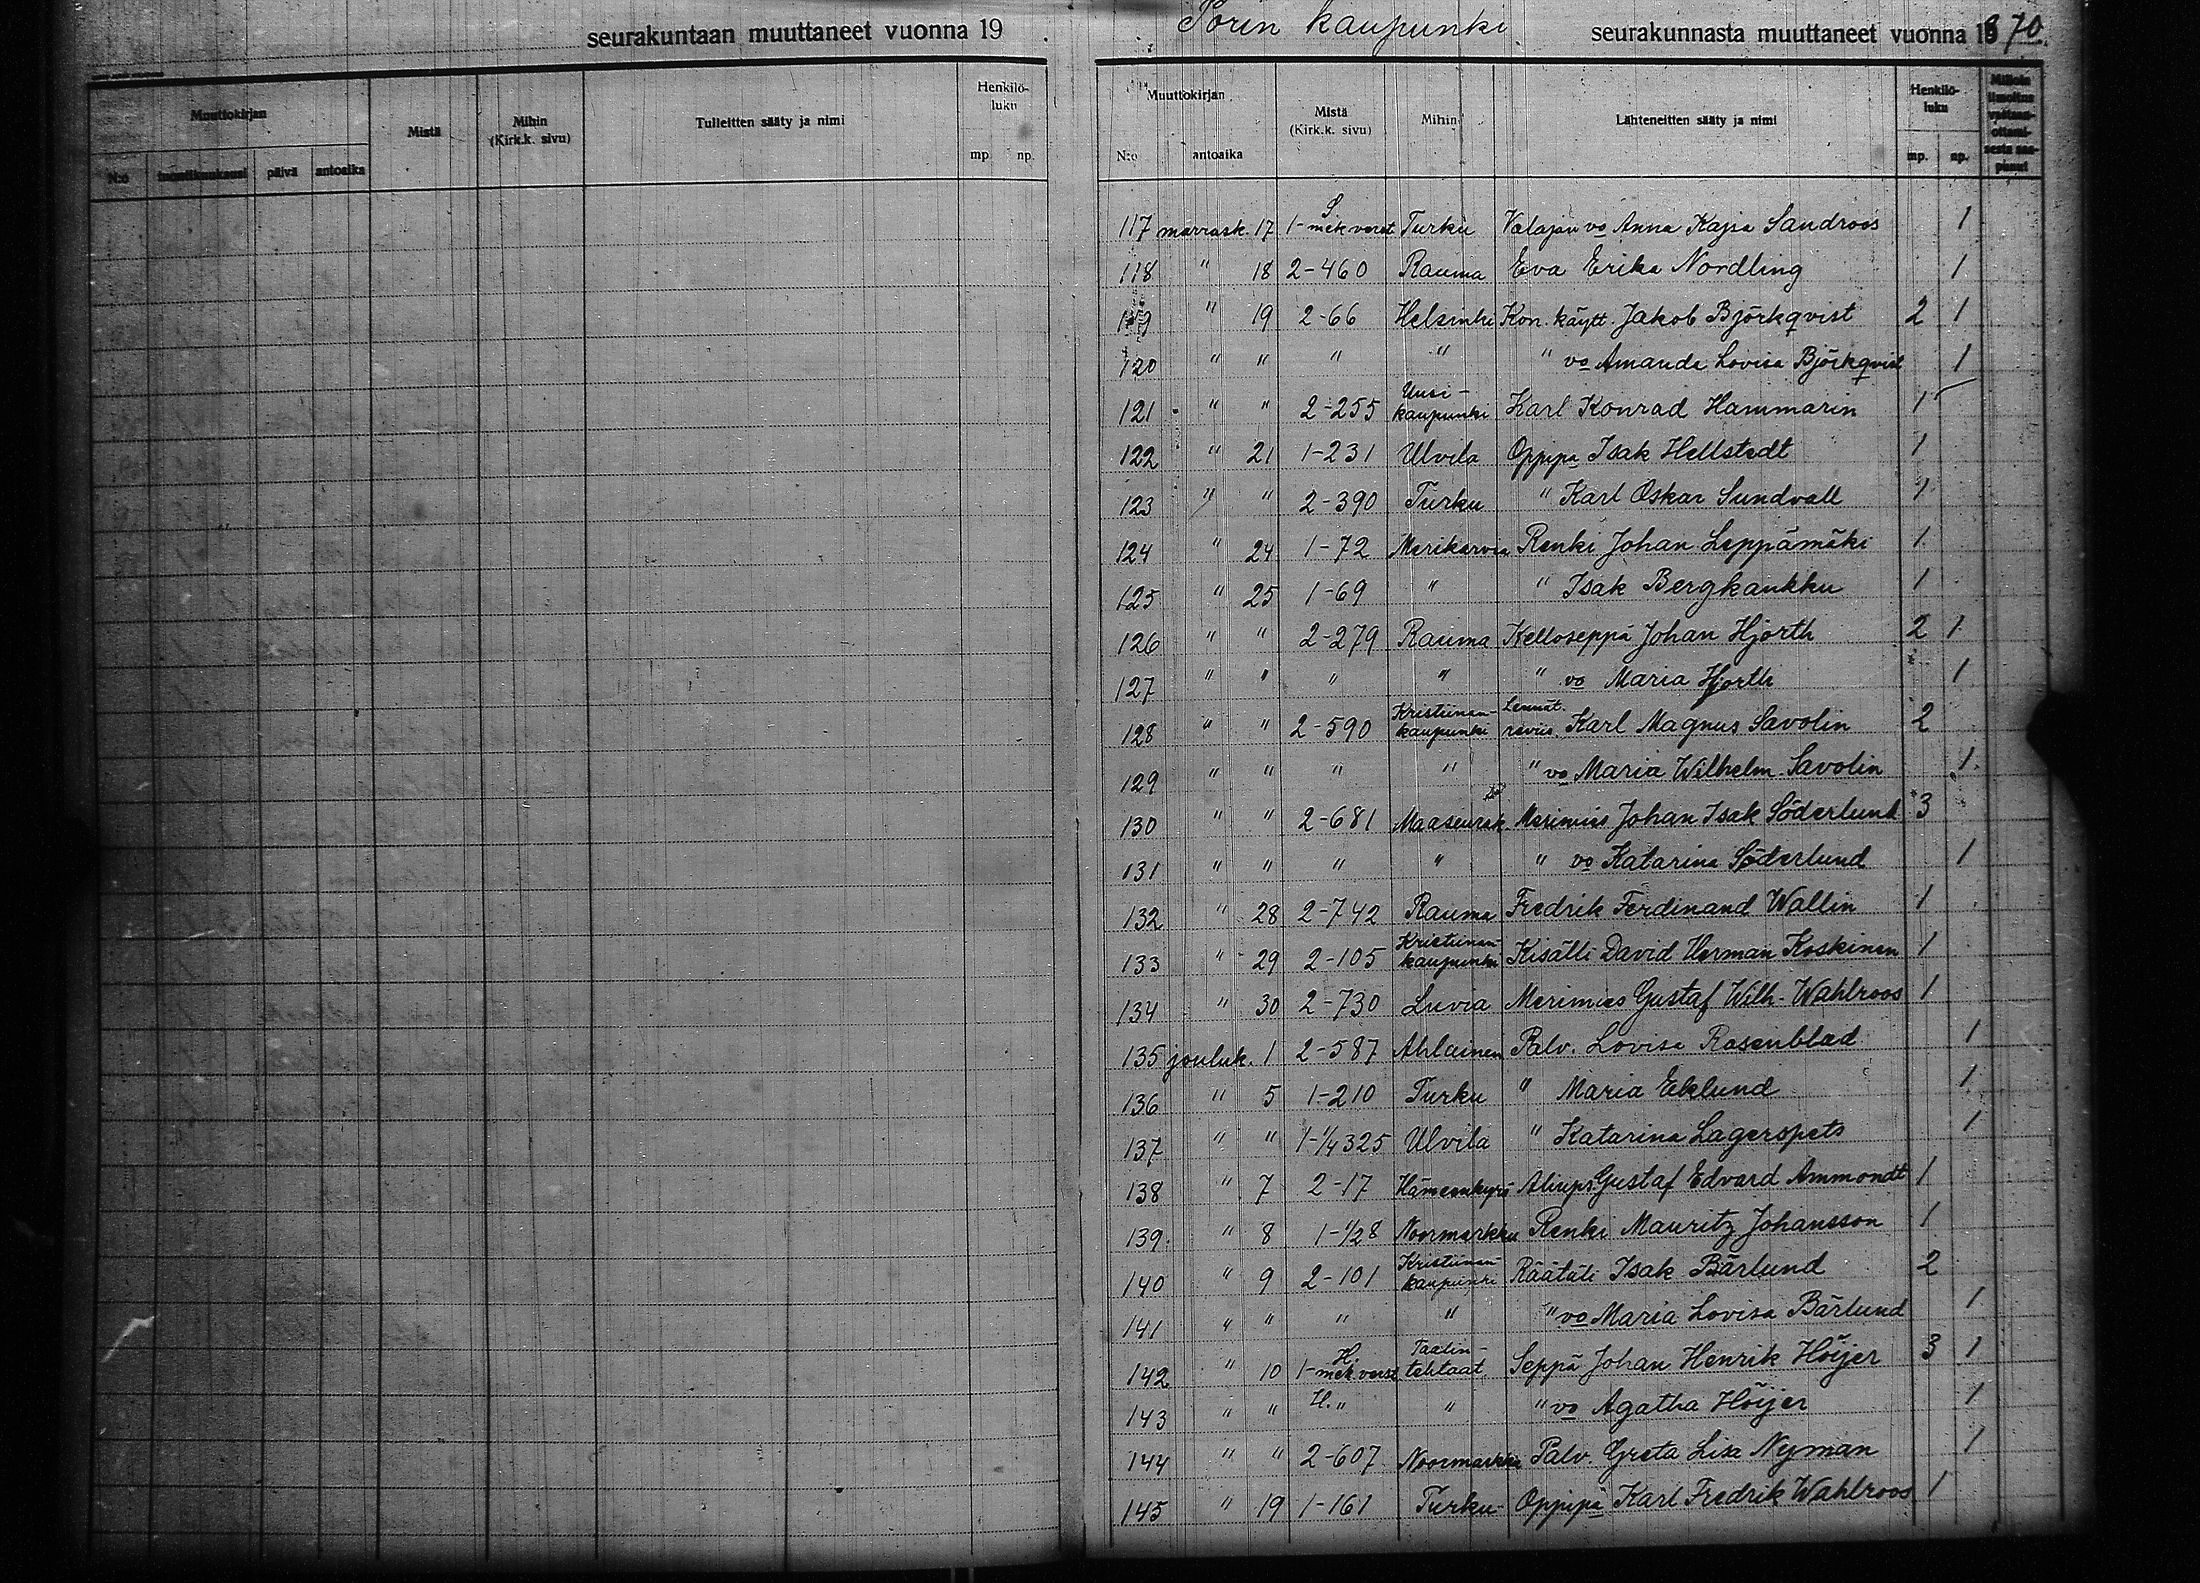 seurakuntaan muuttaneet vuonna 19
Muuttokirjan Mistä Mihin (Kirk.k. sivu) Tulleitten sääty ja nimi Henkilö-luku
N:o päivä antoaika mp. np.
Porin kaupunki seurakunnasta muuttaneet vuonna 1870.
Muuttokirjan Mistä (Kirk.k. sivu) Mihin Lähteneitten sääty ja nimi Henkilö-luku
N:o antoaika mp. np.
117 marrask. 17 1-S. mek verst Turku Valajan vo Anna Kajsa Sandroos 1
118 " 18 2-460 Rauma Eva Erika Nordling 1
119 " 19 2-66 Helsinki Kon. käytt. Jakob Björkqvist 2 1
120 " " " " " vo Amanda Lovisa Björkqvist 1
121 " " 2-255 Uusi-kaupunki Karl Konrad Hammarin 1
122 " 21 1-231 Ulvila Oppipa Isak Hellstedt 1
123 " " 2-390 Turku " Karl Oskar Sundvall 1
124 " 24 1-72 Merikarvia Renki Johan Leppämäki 1
125 " 25 1-69 " " Isak Bergkaukku 1
126 " " 2-279 Rauma Kelloseppä Johan Hjorth 2 1
127 " " " " " vo Maria Hjorth 1
128 " " 2-590 Kristiinan-kaupunki Lennät. reviis. Karl Magnus Savolin 2
129 " " " " " vo Maria Wilhelm. Savolin 1
130 " " 2-681 Maaseurak. Merimies Johan Isak Söderlund 3
131 " " " " " vo Katarina Söderlund 1
132 " 28 2-742 Rauma Fredrik Ferdinand Wallin 1
133 " 29 2-105 Kristiinan-kaupunki Kisälli David Herman Koskinen 1
134 " 30 2-730 Luvia Merimies Gustaf Wilh. Wahlroos 1
135 jouluk. 1 2-587 Ahlainen Palv. Lovisa Rosenblad 1
136 " 5 1-210 Turku " Maria Eklund 1
137 " " 1-1/4 325 Ulvila " Katarina Lagerspets 1
138 " 7 2-17 Hämeenkyrö Aliups Gustaf Edvard Ammondt 1
139. " 8 1-1/28 Noormarkku Renki Mauritz Johansson 1
140 " 9 2-101 Kristiinan-kaupunki Räätäli Isak Bärlund 2
141 " " " " " vo Maria Lovisa Bärlund 1
142 " 10 1-H. mek verst Taalin-tehtaat Seppä Johan Henrik Höijer 3 1
143 " " H. " " " vo Agatha Höijer 1
144 " " 2-607 Noormarkku Palv. Greta Lisa Nyman 1
145 " 19 1-161 Turku Oppipa Karl Fredrik Wahlroos 1